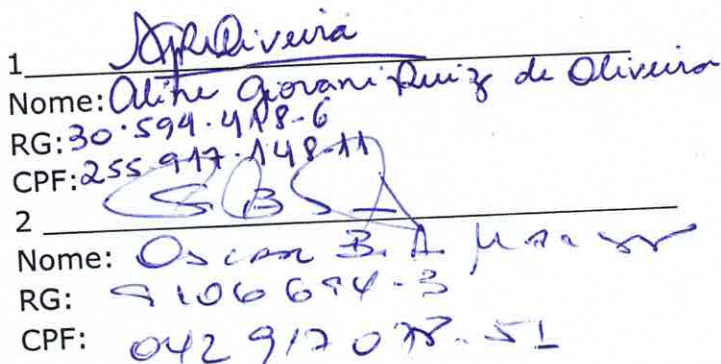 1 AGROliveira
Nome: Aline Giovani Ruiz de Oliveira
RG: 30.594.418-6
CPF: 255.917.148-11
2
Nome: Oscar B. A.
RG: 9106694-3
CPF: 042 917 078-51